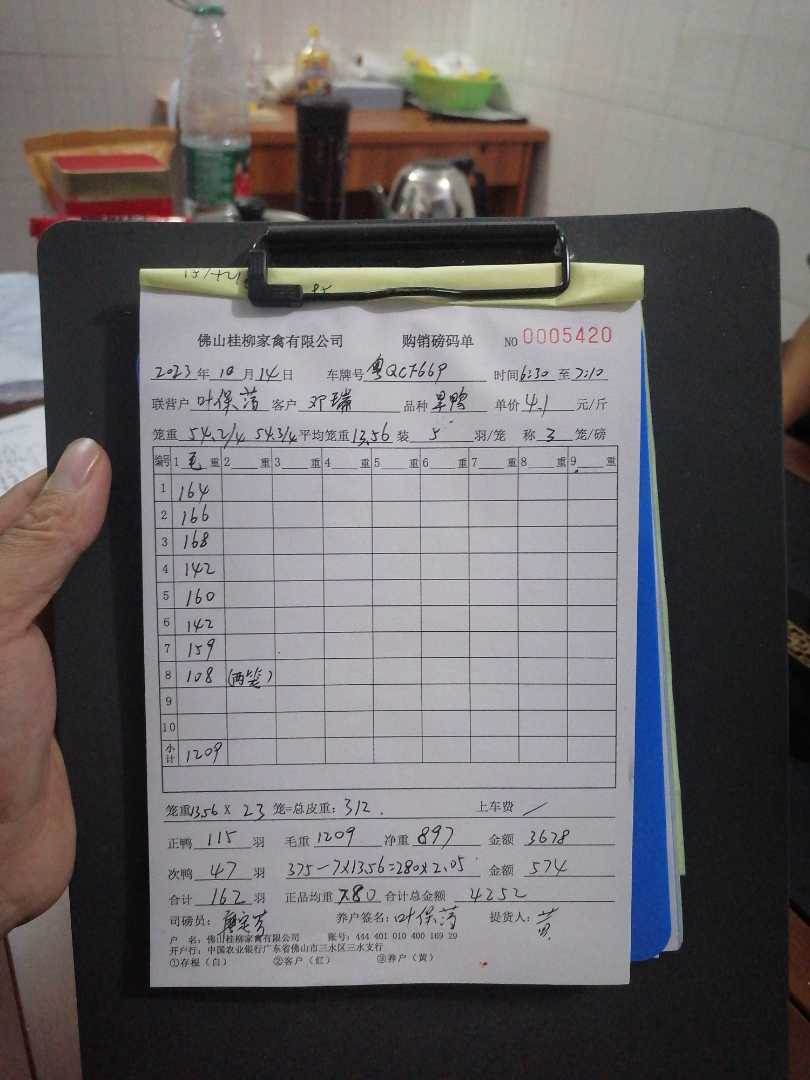 佛山桂柳家禽有限公司 购销磅码单 NO 0005420
2023年10月14日 车牌号粤QCF669 时间6:30至7:10
联营户叶保 客户邓瑞 品种 单价4.1元/斤
笼重54.2/4 54.3/4平均笼重13.56装5羽/笼 称3笼/磅
编号 1毛重 2重 3重 4重 5重 6重 7重 8重 9重
1 164
2 166
3 168
4 142
5 160
6 142
7 159
8 108 (两笼)
9
10
小计 1209
笼重13.56 X 23笼=总皮重:312. 上车费 /
正鸭115羽 毛重1209 净重897 金额3678
次鸭47羽 375-7X13.56=280X2.05 金额574
合计162羽 正品均重7.80 合计总金额4252
司磅员: 养户签名:叶保 提货人:黄
户 名:佛山桂柳家禽有限公司 账号:444 401 010 400 169 29
开户行:中国农业银行广东省佛山市三水区三水支行
①存根(白) ②客户(红) ③养户(黄)